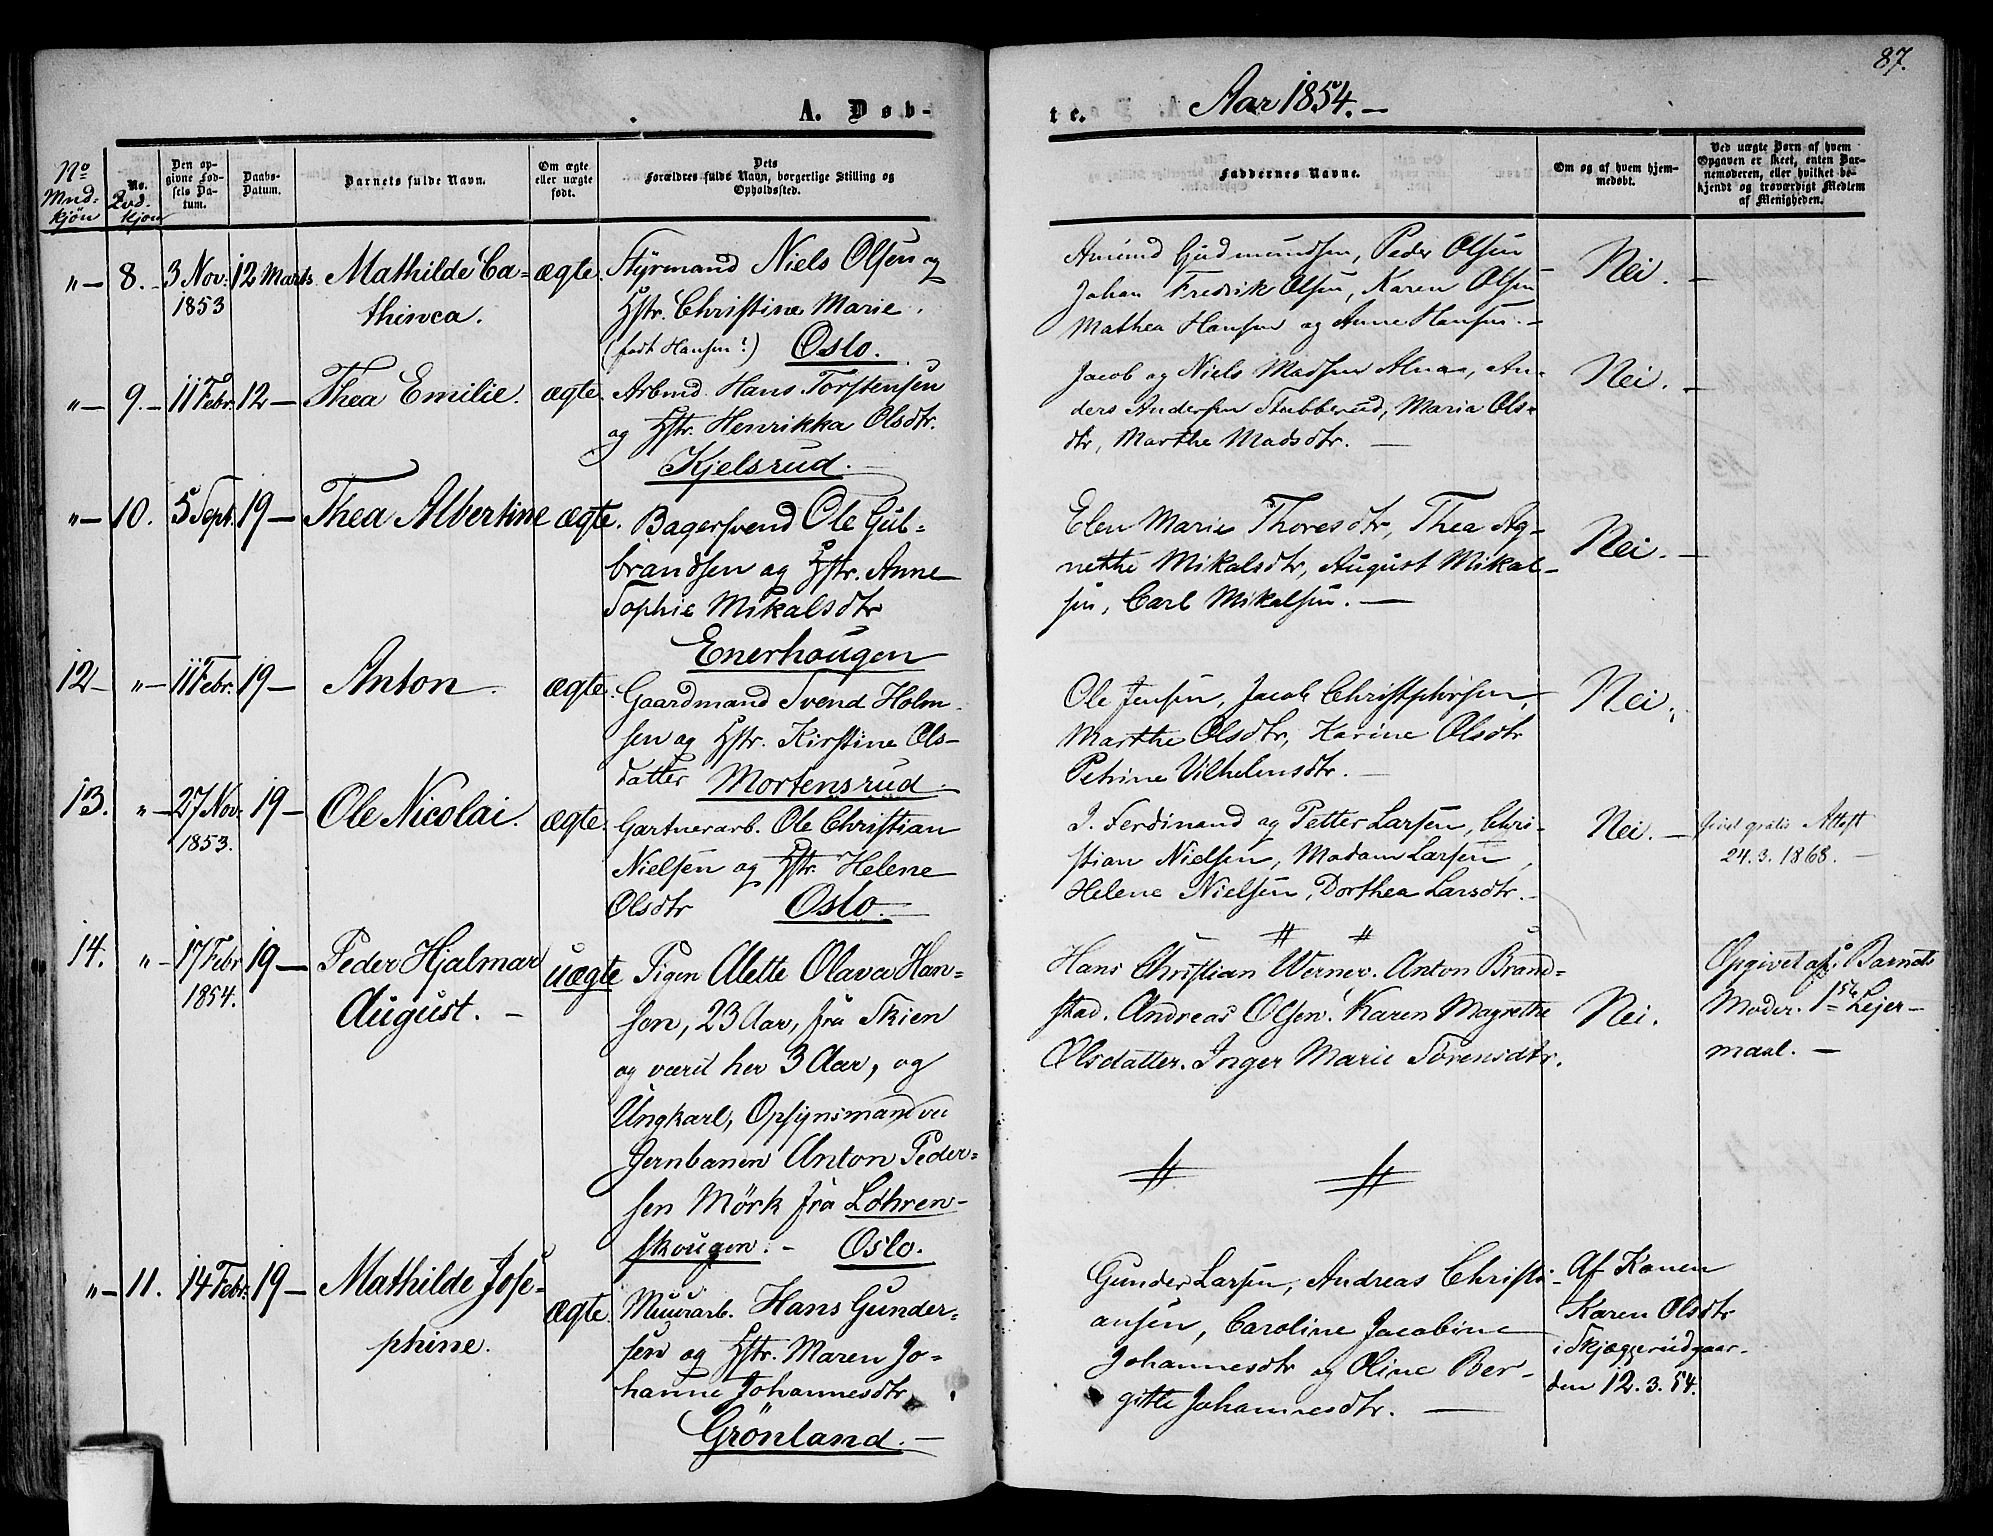 87.
A. Døb-
te.
Aar 1854.-
No Mnd-kjön
No. Qvd. kjøn
Den op-givne Fød-sels Da-tum.
Daabs-Datum.
Barnets fulde Navn.
Om ægte eller uægte født.
Dets Forældres fulde Navn, borgerlige Stilling og Opholdssted.
Faddernes Navne.
Om og af hvem hjem-medøbt.
Ved uægte Børn af hvem Opgaven er skeet, enten Bar-nemoderen, eller hvilket be-kjendt og troværdigt Medlem af Menigheden.
"— 8.- 3 Nov: 12 Marts Mathilde Ca- ægte. Styrmand Niels Olsen og
1853 thinca. Hstr. Christine Marie.
(født Hansen?) Oslo.
Amund Gudmundsen, Peder Olsen
Johan Fredrik Olsen, Karen Olsen
Mathea Hansen og Anne Hansen.-
Nei. -
"— 9.- 11 Febr. 12- Thea Emilie. ægte. Arbmd. Hans Torstensen
og Hstr. Henrikka Olsdtr.
Kjelsrud.
Jacob og Niels Madsen Alnaa, An-
ders Andersen Stubberud, Maria Ols-
dtr, Marthe Madsdtr. —
Nei. -
"— 10. 5 Sept. 19- Thea Albertine ægte. Bagersvend Ole Gul-
brandsen og Hstr. Anne
Sophie Mikalsdtr
Enerhougen
Elen Marie Thoresdtr, Thea Ag-
nethe Mikalsdtr, August Mikal-
sen, Carl Mikalsen. —
Nei. -
12- "— 11 Febr. 19- Anton. ægte. Gaardmand Svend Holm-
sen og Hstr. Kirstine Ols-
datter Mortensrud.
Ole Jensen, Jacob Christophersen,
Marthe Olsdtr, Karine Olsdtr
Petrine Vilhelmsdtr. -
Nei.
13. "— 27 Nov: 19- Ole Nicolai. ægte. Gartnerarb. Ole Christian
1853. Nielsen og Hstr. Helene
Olsdtr Oslo.-
J. Ferdinand og Petter Larsen, Chri-
stian Nielsen, Madam Larsen,
Helene Nielsen, Dorthea Larsdtr.-
Nei. -
gratis Attest
24.3.1868. -
14. "— 17 Febr 19- Peder Hjalmar uægte Pigen Alette Olava Han-
1854. August. - sen, 23 Aar, fra Skien
og været her 3 Aar, og
Ungkarl, Opsynsmand ved
Jernbanen Anton Peder-
sen Mörk fra Löhren-
skougen. - Oslo.
Hans Christian Werner. Anton Brand-
stad. Andreas Olsen. Karen Magrethe
Olsdatter. Inger Marie Sörensdtr.
Nei.
Opgivet af Barnets
Moder. 1ste Lejer-
maal. -
"— 11. 14 Febr: 19- Mathilde Jose- ægte. Muurarb. Hans Gunder-
phine. sen og Hstr. Maren Jo-
hanne Johannesdtr
Grönland. -
Gunder Larsen, Andreas Christi-
ansen, Caroline Jacobine
Johannesdtr og Oline Ber-
gitte Johannesdtr. —
Af Konen
Karen Olsdtr
i Skjæggerudgaar-
den 12.3.54.